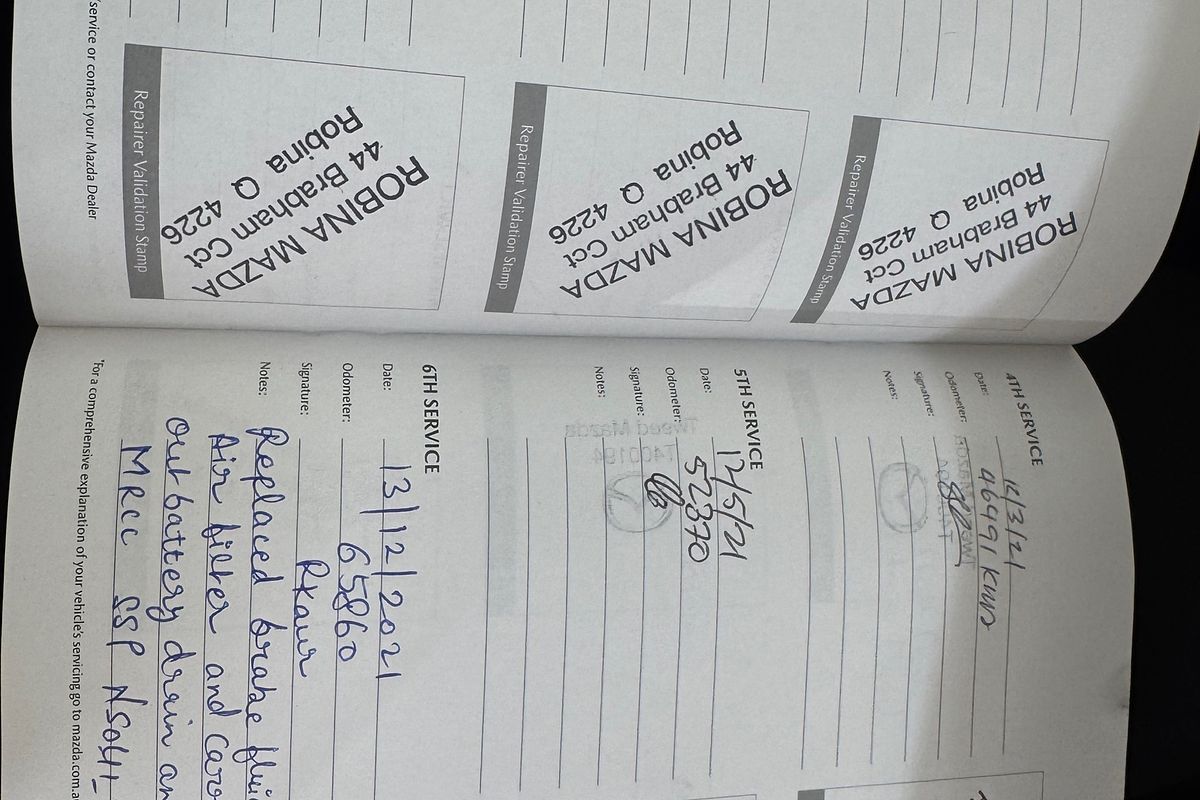 ROBINA MAZDA
44 Brabham Cct
Robina Q 4226
Repairer Validation Stamp
ROBINA MAZDA
44 Brabham Cct
Robina Q 4226
Repairer Validation Stamp
ROBINA MAZDA
44 Brabham Cct
Robina Q 4226
Repairer Validation Stamp
service or contact your Mazda Dealer
4TH SERVICE
Date: 12/3/21
Odometer: 46491 kms
Signature:
Notes:
5TH SERVICE
Date: 12/5/21
Odometer: 52370
Signature:
Notes:
Tweed Mazda
6TH SERVICE
Date: 13/12/2021
Odometer: 65860
Signature: Rkaur
Notes: Replaced brake flui
Air filter and Carr
out battery drain an
MRCC SSP
*For a comprehensive explanation of your vehicle's servicing go to mazda.com.a